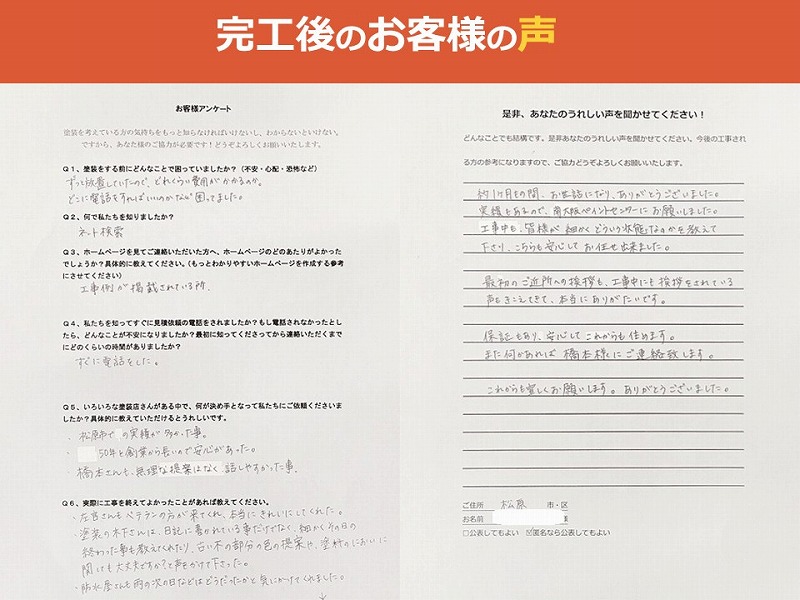 完工後のお客様の声
お客様アンケート
塗装を考えている方の気持ちをもっと知らなければいけないし、わからないといけない。
ですから、あなた様のご協力が必要です！どうぞよろしくお願いいたします。
Q1、塗装をする前にどんなことで困っていましたか？（不安・心配・恐怖など）
ずっと放置していたので、どれくらい費用がかかるのか。
どこに電話をすればいいのかなど困ってました。
Q2、何で私たちを知りましたか？
ネット検索
Q3、ホームページを見てご連絡いただいた方へ、ホームページのどのあたりがよかった
でしょうか？具体的に教えてください。（もっとわかりやすいホームページを作成する参考
にさせてください）
工事例が掲載されている所。
Q4、私たちを知ってすぐに見積依頼の電話をされましたか？もし電話されなかったとし
たら、どんなことが不安になりましたか？最初に知ってくださってから連絡いただくまで
にどのくらいの時間がありましたか？
すぐに電話をした。
Q5、いろいろな塗装店さんがある中で、何が決め手となって私たちにご依頼くださいま
したか？具体的に教えていただけるとうれしいです。
・松原市で の実績が多かった事。
・ 50年と創業から長いので安心があった。
・橋本さんも、無理な提案はなく 話しやすかった事。
Q6、実際に工事を終えてよかったことがあれば教えてください。
・左官さんもベテランの方が来てくれ、本当にきれいにしてくれた。
・塗装の木下さんは、日記に書かれている事だけでなく、細かくその日の
終わった事も教えてくれたり、古い木の部分の色の提案や、塗料のにおいに
関しても大丈夫ですか？と声をかけて下さった。
・防水屋さんも雨の次の日などはどうだったかと気にかけてくれました。
是非、あなたのうれしい声を聞かせてください！
どんなことでも結構です。是非あなたのうれしい声を聞かせてください。今後の工事され
る方の参考になりますので、ご協力どうぞよろしくお願いいたします。
約1ヶ月もの間、お世話になり、ありがとうございました。
実績もあるので、南大阪ペイントセンターにお願いしました。
工事中も、皆様が細かくどういう状態なのかを教えて
下さり、こちらも安心してお任せ出来ました。
最初のご近所への挨拶も、工事中にも挨拶をされている
声もきこえてきて、本当にありがたいです。
保証もあり、安心してこれからも住めます。
また何かあれば橋本様にご連絡致します。
これからも宜しくお願いします。ありがとうございました。
ご住所 松原 市・区
お名前
□公表してもよい ☑匿名なら公表してもよい